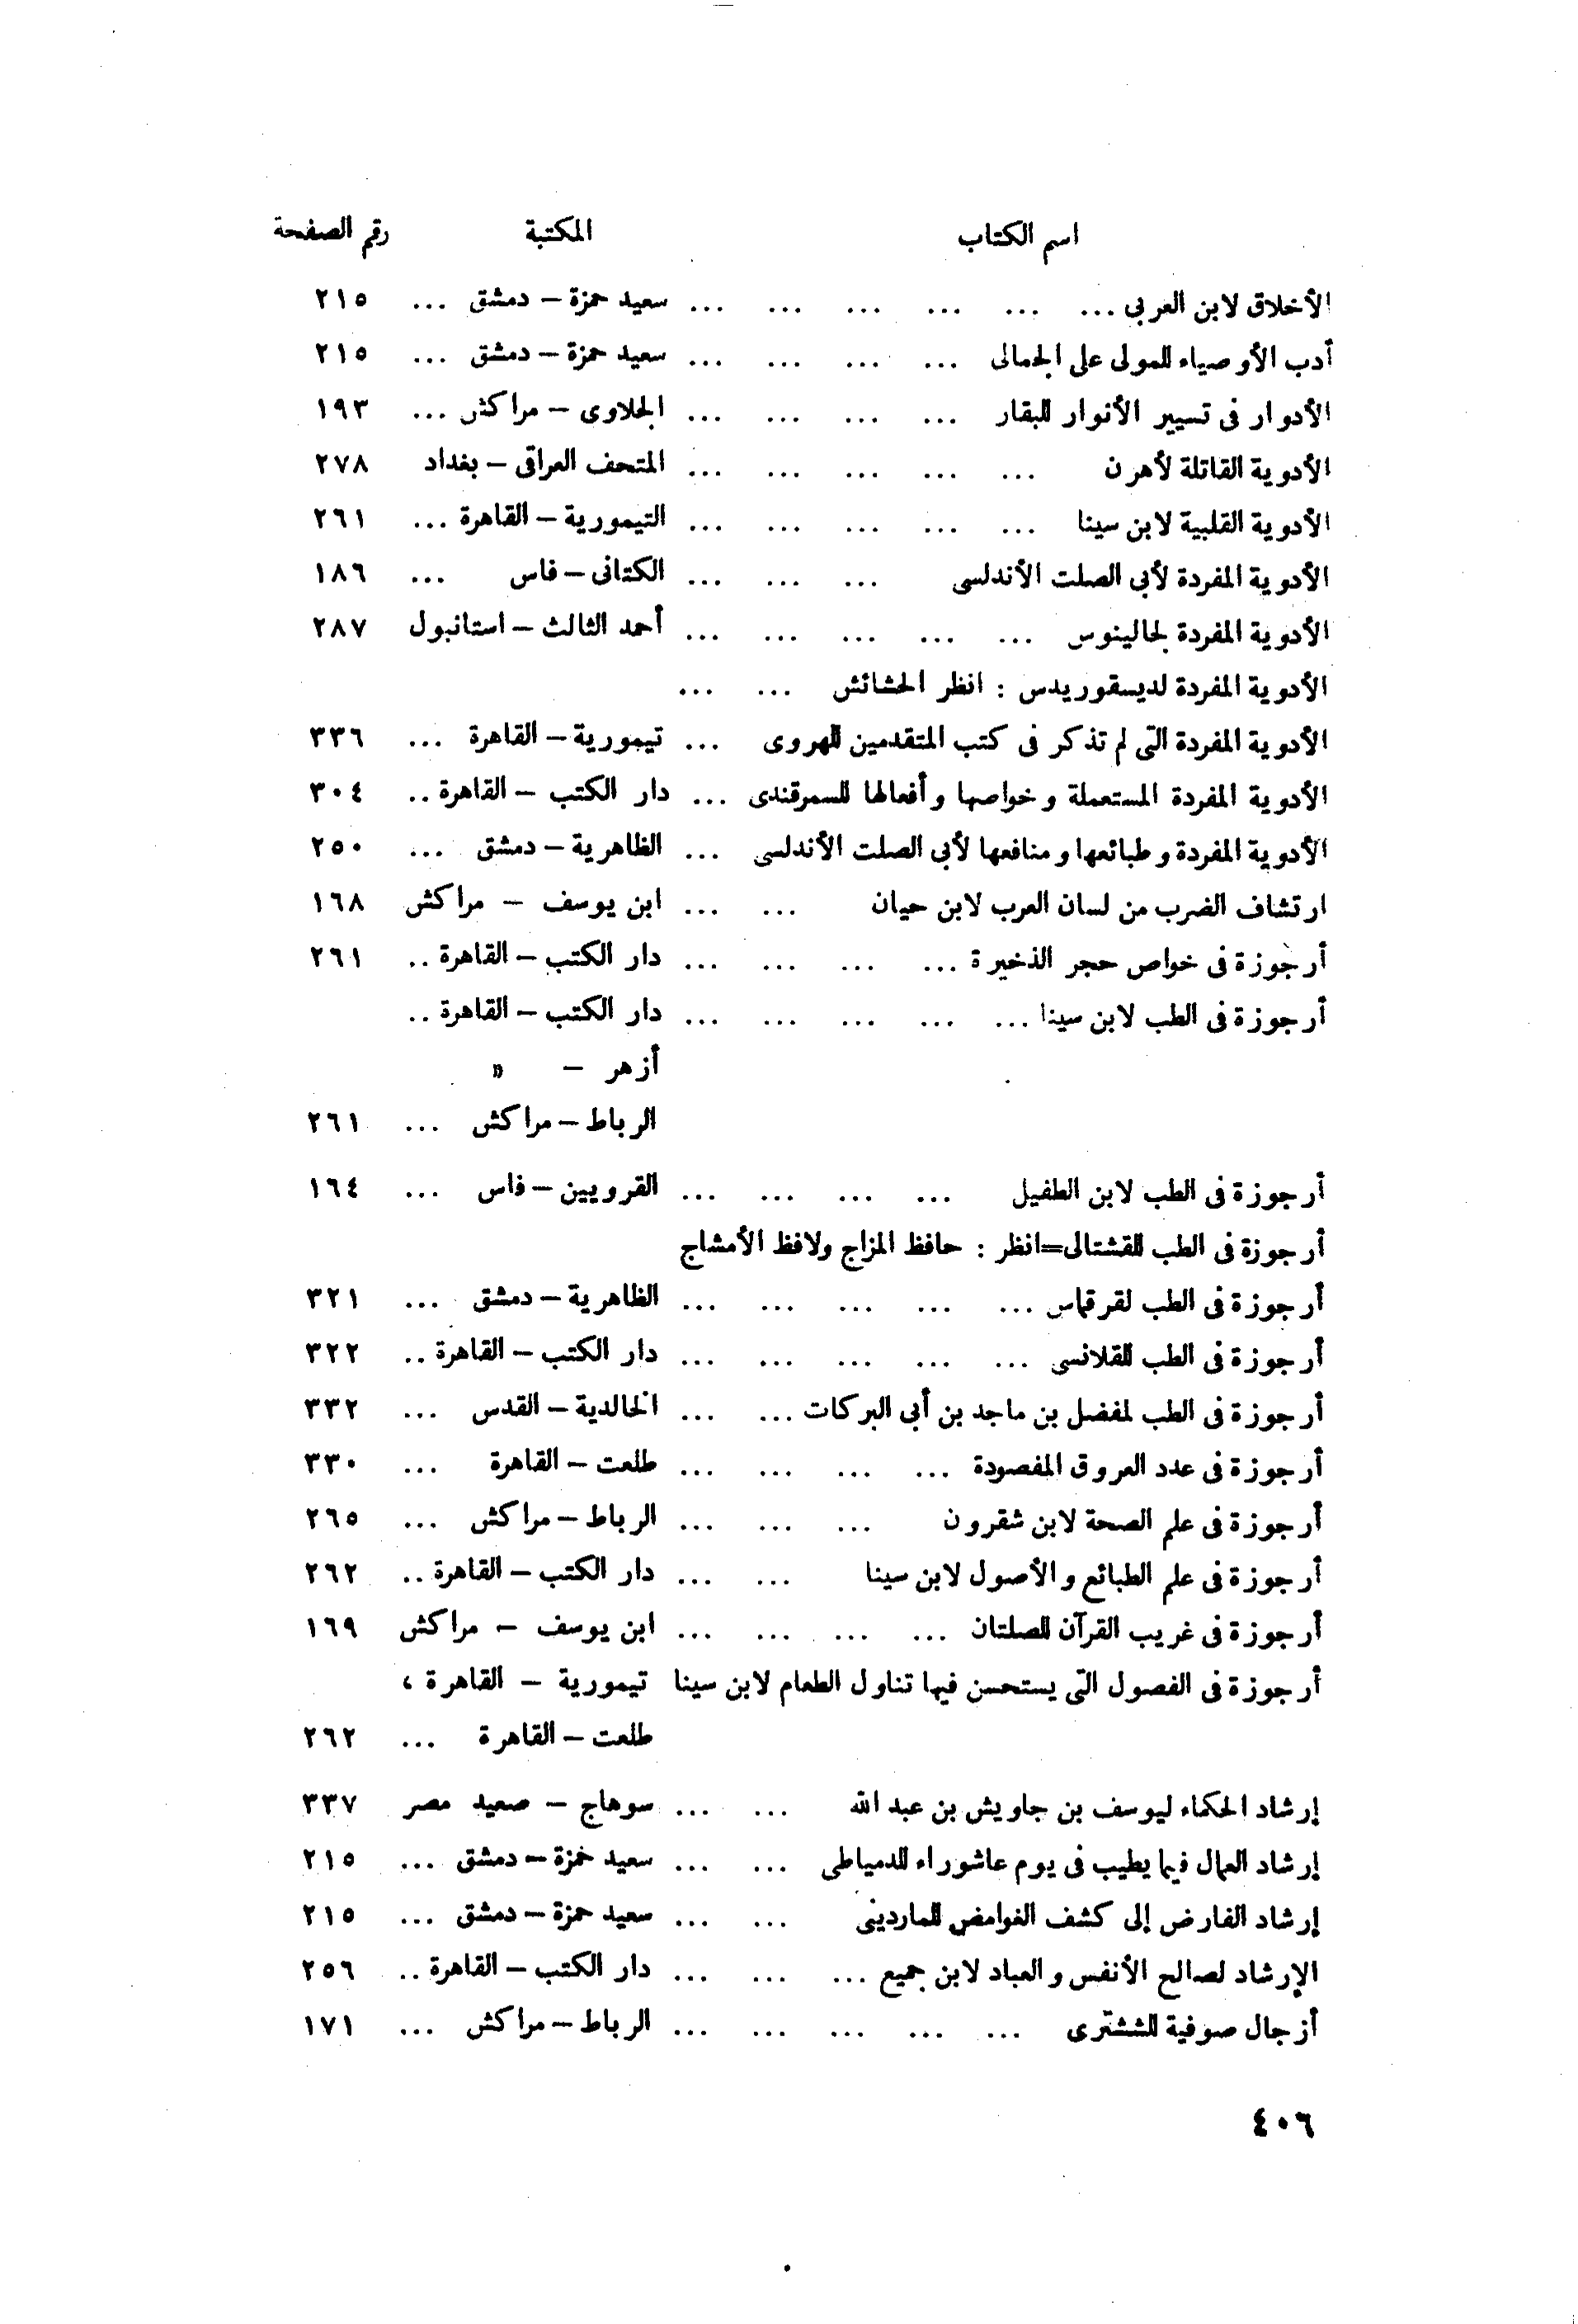 اسم الكتاب المكتبة رقم الصفحة
الأخلاق لابن العربى ... ... ... ... ... ... سعيد حمزة – دمشق ... ٢١٥
أدب الأوصياء للمولى على الجمالى ... ... ... ... سعيد حمزة – دمشق ... ٢١٥
الأدوار فى تسيير الأنوار للبقار ... ... ... ... الجلاوى – مراكش ... ١٩٣
الأدوية القاتلة لأهرن ... ... ... ... ... المتحف العراقى – بغداد ٢٧٨
الأدوية القلبية لابن سينا ... ... ... ... ... التيمورية – القاهرة ... ٢٦١
الأدوية المفردة لأبى الصلت الأندلسى ... ... ... الكتانى – فاس ... ١٨٦
الأدوية المفردة لجالينوس ... ... ... ... ... أحمد الثالث – استانبول ٢٨٧
الأدوية المفردة لديسقوريدس : انظر الحشائش ... ...
الأدوية المفردة التى لم تذكر فى كتب المتقدمين للهروى ... تيمورية – القاهرة ... ٣٣٦
الأدوية المفردة المستعملة وخواصها وأفعالها للسمرقندى ... دار الكتب – القاهرة .. ٣٠٤
الأدوية المفردة وطبائعها ومنافعها لأبى الصلت الأندلسى ... الظاهرية – دمشق ... ٢٥٠
ارتشاف الضرب من لسان العرب لابن حيان ... ... ابن يوسف – مراكش ١٦٨
أرجوزة فى خواص حجر الذخيرة ... ... ... ... دار الكتب – القاهرة .. ٢٦١
أرجوزة فى الطب لابن سينا ... ... ... ... ... دار الكتب – القاهرة ..
أزهر – »
الرباط – مراكش ... ٢٦١
أرجوزة فى الطب لابن الطفيل ... ... ... ... القرويين – فاس ... ١٦٤
أرجوزة فى الطب للقشتالى=انظر : حافظ المزاج ولافظ الأمشاج
أرجوزة فى الطب لقرقماس ... ... ... ... ... الظاهرية – دمشق ... ٣٢١
أرجوزة فى الطب للقلانسى ... ... ... ... ... دار الكتب – القاهرة .. ٣٢٢
أرجوزة فى الطب لمفضل بن ماجد بن أبى البركات ... ... الخالدية – القدس ... ٣٣٢
أرجوزة فى عدد العروق المفصودة ... ... ... ... طلعت – القاهرة ... ٣٣٠
أرجوزة فى علم الصحة لابن شقرون ... ... ... الرباط – مراكش ... ٢٦٥
أرجوزة فى علم الطبائع والأصول لابن سينا ... ... دار الكتب – القاهرة .. ٢٦٢
أرجوزة فى غريب القرآن للصلتان ... ... ... ... ابن يوسف – مراكش ١٦٩
أرجوزة فى الفصول التى يستحسن فيها تناول الطعام لابن سينا تيمورية – القاهرة ،
طلعت – القاهرة ... ٢٦٢
إرشاد الحكماء ليوسف بن جاويش بن عبد الله ... ... سوهاج – صعيد مصر ٣٣٧
إرشاد العمال فيما يطيب فى يوم عاشوراء للدمياطى ... ... سعيد حمزة – دمشق ... ٢١٥
إرشاد الفارض إلى كشف الغوامض للماردينى ... ... سعيد حمزة – دمشق ... ٢١٥
الإرشاد لصالح الأنفس والعباد لابن جميع ... ... ... دار الكتب – القاهرة .. ٢٥٦
أزجال صوفية للششترى ... ... ... ... ... الرباط – مراكش ... ١٧١
٤٠٦